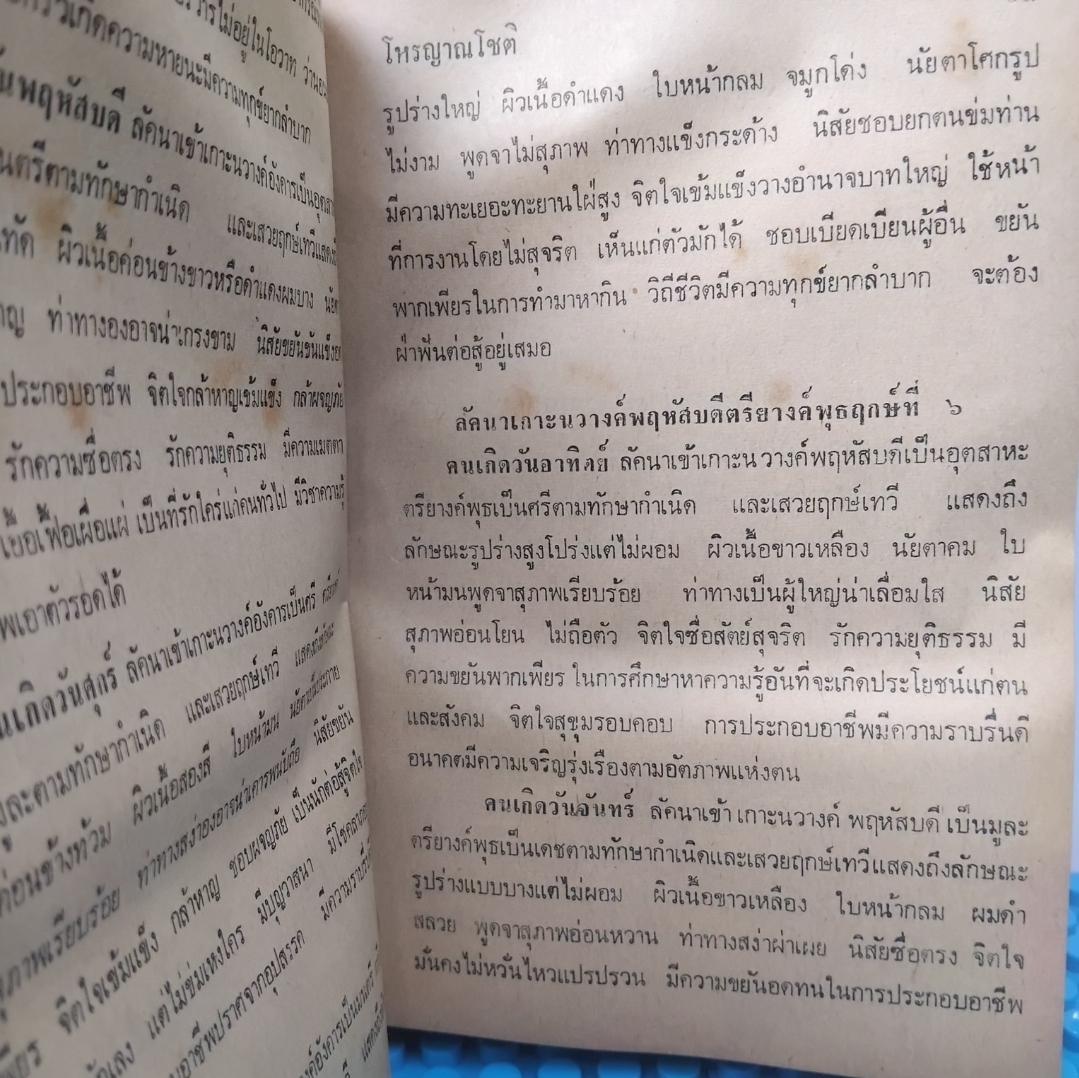 รไม่อยู่ในโอวาท
เกิดความหายนะมีความทุกข์ยากลำบาก
พฤหัสบดี ลัคนาเข้าเกาะนวางค์อังคารเป็นอุตสา
นตรีตามทักษากำเนิด และเสวยฤกษ์เทวี
ทัด ผิวเนื้อค่อนข้างขาวหรือดำแดงผมบาง นัยตา
ท่าทางองอาจน่าเกรงขาม นิสัยขยันขันแข็ง
ประกอบอาชีพ จิตใจกล้าหาญเข้มแข็ง กล้าผจญภัย
รักความซื่อตรง รักความยุติธรรม มีความเมตตา
เอื้อเฟื้อเผื่อแผ่ เป็นที่รักใคร่แก่คนทั่วไป มีวิชาความรู้
พเอาตัวรอดได้
นเกิดวันศุกร์ ลัคนาเข้าเกาะนวางค์อังคารเป็นศรี
ูละตามทักษากำเนิด และเสวยฤกษ์เทวี
ค่อนข้างท้วม ผิวเนื้อสองสี ใบหน้ามน
ุภาพเรียบร้อย ท่าทางสง่าองอาจน่าเคารพนับถือ นิสัยขยัน
เพียร จิตใจเข้มแข็ง กล้าหาญ ชอบผจญภัย เป็นนักต่อสู้
แต่ไม่ข่มเหงใคร มีบุญวาสนา มีโชคลาภ
อาชีพปราศจากอุปสรรค มีความราบรื่น
โหรญาณโชติ
รูปร่างใหญ่ ผิวเนื้อดำแดง ใบหน้ากลม จมูกโด่ง นัยตาโศกรูป
ไม่งาม พูดจาไม่สุภาพ ท่าทางแข็งกระด้าง นิสัยชอบยกตนข่มท่าน
มีความทะเยอะทะยานใฝ่สูง จิตใจเข้มแข็งวางอำนาจบาทใหญ่ ใช้หน้า
ที่การงานโดยไม่สุจริต เห็นแก่ตัวมักได้ ชอบเบียดเบียนผู้อื่น ขยัน
พากเพียรในการทำมาหากิน วิถีชีวิตมีความทุกข์ยากลำบาก จะต้อง
ฝ่าฟันต่อสู้อยู่เสมอ
ลัคนาเกาะนวางค์พฤหัสบดีตรียางค์พุธฤกษ์ที่ ๖
คนเกิดวันอาทิตย์ ลัคนาเข้าเกาะนวางค์พฤหัสบดีเป็นอุตสาหะ
ตรียางค์พุธเป็นศรีตามทักษากำเนิด และเสวยฤกษ์เทวี แสดงถึง
ลักษณะรูปร่างสูงโปร่งแต่ไม่ผอม ผิวเนื้อขาวเหลือง นัยตาคม ใบ
หน้ามนพูดจาสุภาพเรียบร้อย ท่าทางเป็นผู้ใหญ่น่าเลื่อมใส นิสัย
สุภาพอ่อนโยน ไม่ถือตัว จิตใจซื่อสัตย์สุจริต รักความยุติธรรม มี
ความขยันพากเพียร ในการศึกษาหาความรู้อันที่จะเกิดประโยชน์แก่ตน
และสังคม จิตใจสุขุมรอบคอบ การประกอบอาชีพมีความราบรื่นดี
อนาคตมีความเจริญรุ่งเรืองตามอัตภาพแห่งตน
คนเกิดวันจันทร์ ลัคนาเข้าเกาะนวางค์ พฤหัสบดี เป็นมูละ
ตรียางค์พุธเป็นเดชตามทักษากำเนิดและเสวยฤกษ์เทวีแสดงถึงลักษณะ
รูปร่างแบบบางแต่ไม่ผอม ผิวเนื้อขาวเหลือง ใบหน้ากลม ผมดำ
สลวย พูดจาสุภาพอ่อนหวาน ท่าทางสง่าผ่าเผย นิสัยซื่อตรง จิตใจ
มั่นคงไม่หวั่นไหวแปรปรวน มีความขยันอดทนในการประกอบอาชีพ